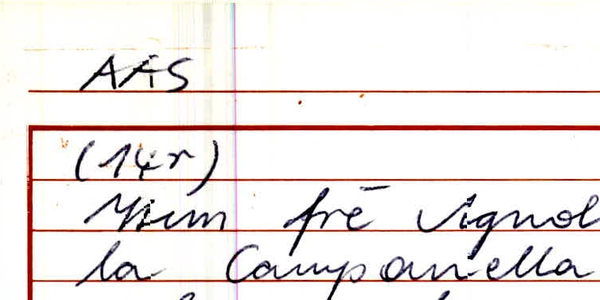 AAS
(14r)
Item frē Vignol
la Campanella